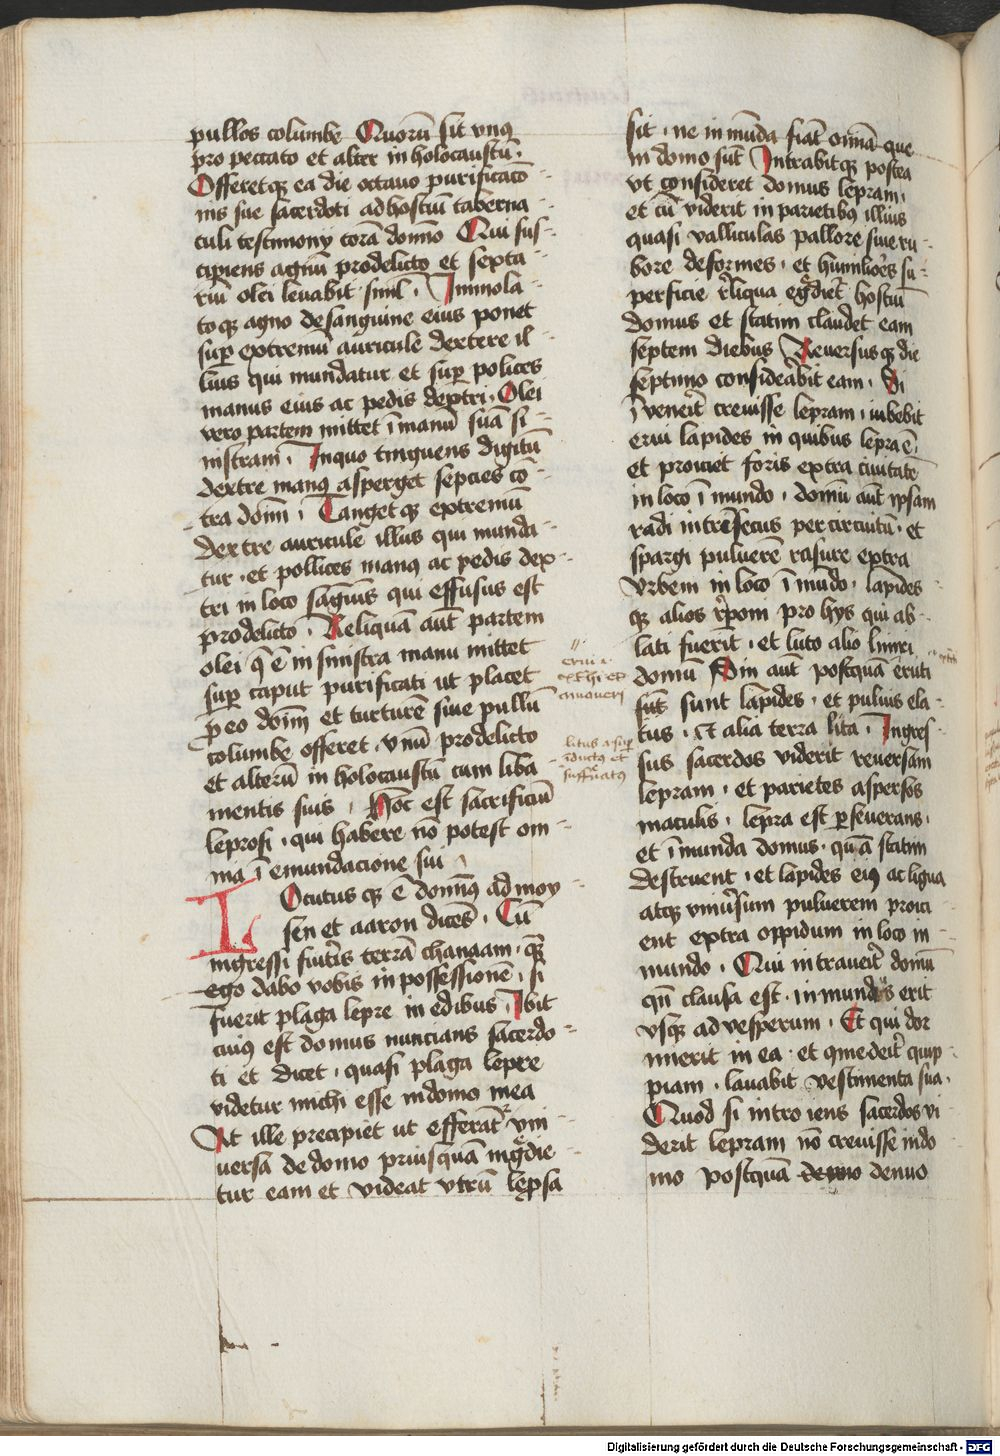 pullos columbe Quorū sit vnus
pro peccato et alter in holocaustū ·
Offeretqꝫ ea die octauo purificacō
nis sue sacerdoti ad hostiū taberna
culi testimonij corā domīo Qui sus
cipiens agnū pro delicto et sexta
riū olei leuabit siml · Immola
toqꝫ agno de sanguine eius ponet
suꝑ extremū auricule dextere il
lius qui mundatur et suꝑ polices
manus eius ac pedis dextri · Olei
vero partem mittet ī manū suā si
nistram · Inquo tinguens digitū
dextre manꝰ asperget sepcies cō
tra domī · Tanget qꝫ extremū
dextre auricule illius qui munda
tur · et pollices manꝰ ac pedis dex
tri in loco sāguīs qui effusus est
pro delicto · Reliquā aut̄ partem
olei q̄ ē in sinistra manu mittet
suꝑ caput purificati ut placet
ꝓ eo domī et turturē siue pullū
columbe offeret · vnū pro delicto
et alterū in holocaustū cum liba
mentis suis · Hoc est sacrificiū
leprosi · qui habere nō potest om
nia ī emundacione sui
LOcutus qꝫ ē domīꝰ ad moy
sen et aaron dicēs · Cū
ingressi fuit̄is terrā chanaam · quā
ego dabo vobis in possessionē · si
fuerit plaga lepre in edibus · Ibit
cuiꝰ est domus nuncians sacerdo
ti et dicet · quasi plaga lepre
videtur michi esse in domo mea
At ille precipiet ut efferāt vni
uersa de domo priusquā ingdie
tur eam et videat vtrū lepsa
sit · ne in mūda fiāt omīa que
in domo sūt Intrabitqꝫ postea
vt consideret domus lepram ·
et cū viderit in parietibꝰ illius
quasi valliculas pallore siue ru
bore deformes · et humliōes su
perficie rliqua egdiet̄ hostiū
domus et statim claudet eam
septem diebus Reuersusqꝫ die
septimo considerabit eam · Si
īueneīt creuisse lepram · iubebit
erui lapides in quibus lepra ē ·
et proiciet foris extra ciuitatē
in loco ī mundo · domū aut̄ ipsam
radi intrēsecus per circuitū · et
spargi puluerē rasure extra
vrbem in loco ī mūdo · lapides
qꝫ alios rpom pro hijs qui ab
lati fuerīt · et luto alio liniri
domū Sin aut̄ postquā eruti
sūt sunt lapides · et puluis ela
tus · et alia terra lita · Ingres
sus sacerdos viderit reuersam
lepram · et parietes aspersos
maculis · lepra est ꝑseuerans ·
et īmunda domus · quā statim
destruent · et lapides eiꝰ ac ligna
atqꝫ vniūsum puluerem proici
ent extra oppidum in loco in
mundo · Qui intraueit̄ domū
qn̄ clausa est · inmundus erit
vsqꝫ ad vesperum · Et qui dor
mierit in ea · et qmedeit̄ quip
piam · lauabit vestimenta sua ·
Quod si intro iens sacerdos vi
derit lepram nō creuisse in do
mo postquā denuo
erui
litus a super
Digitalisierung gefördert durch die Deutsche Forschungsgemeinschaft - DFG